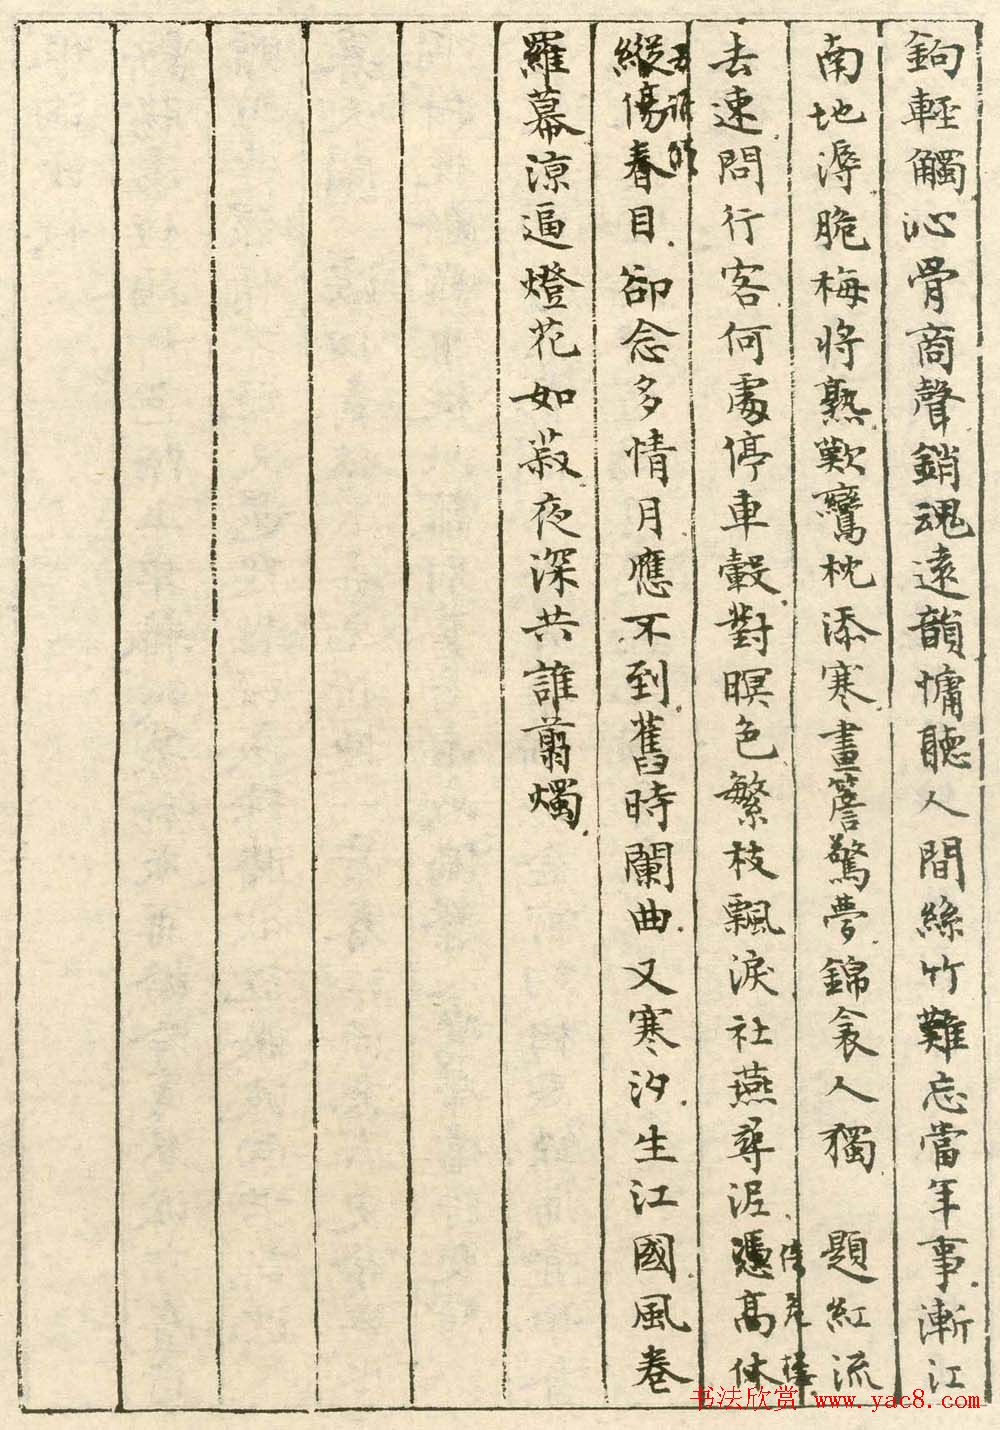 鉤輕觸沁骨商聲銷魂遠韻慵聽人間絲竹難忘當年事漸江
南地溽脆梅將熟歎鸞枕添寒畫簷驚夢錦衾人獨 題紅流
去速問行客何處停車轂對暝色繁枝飄淚社燕尋泥憑高休
倚危樓
縱傷春目卻念多情月應不到舊時闌曲又寒汐生江國風卷
羅幕涼逼燈花如菽夜深共誰翦燭
书法欣赏 www.yac8.com